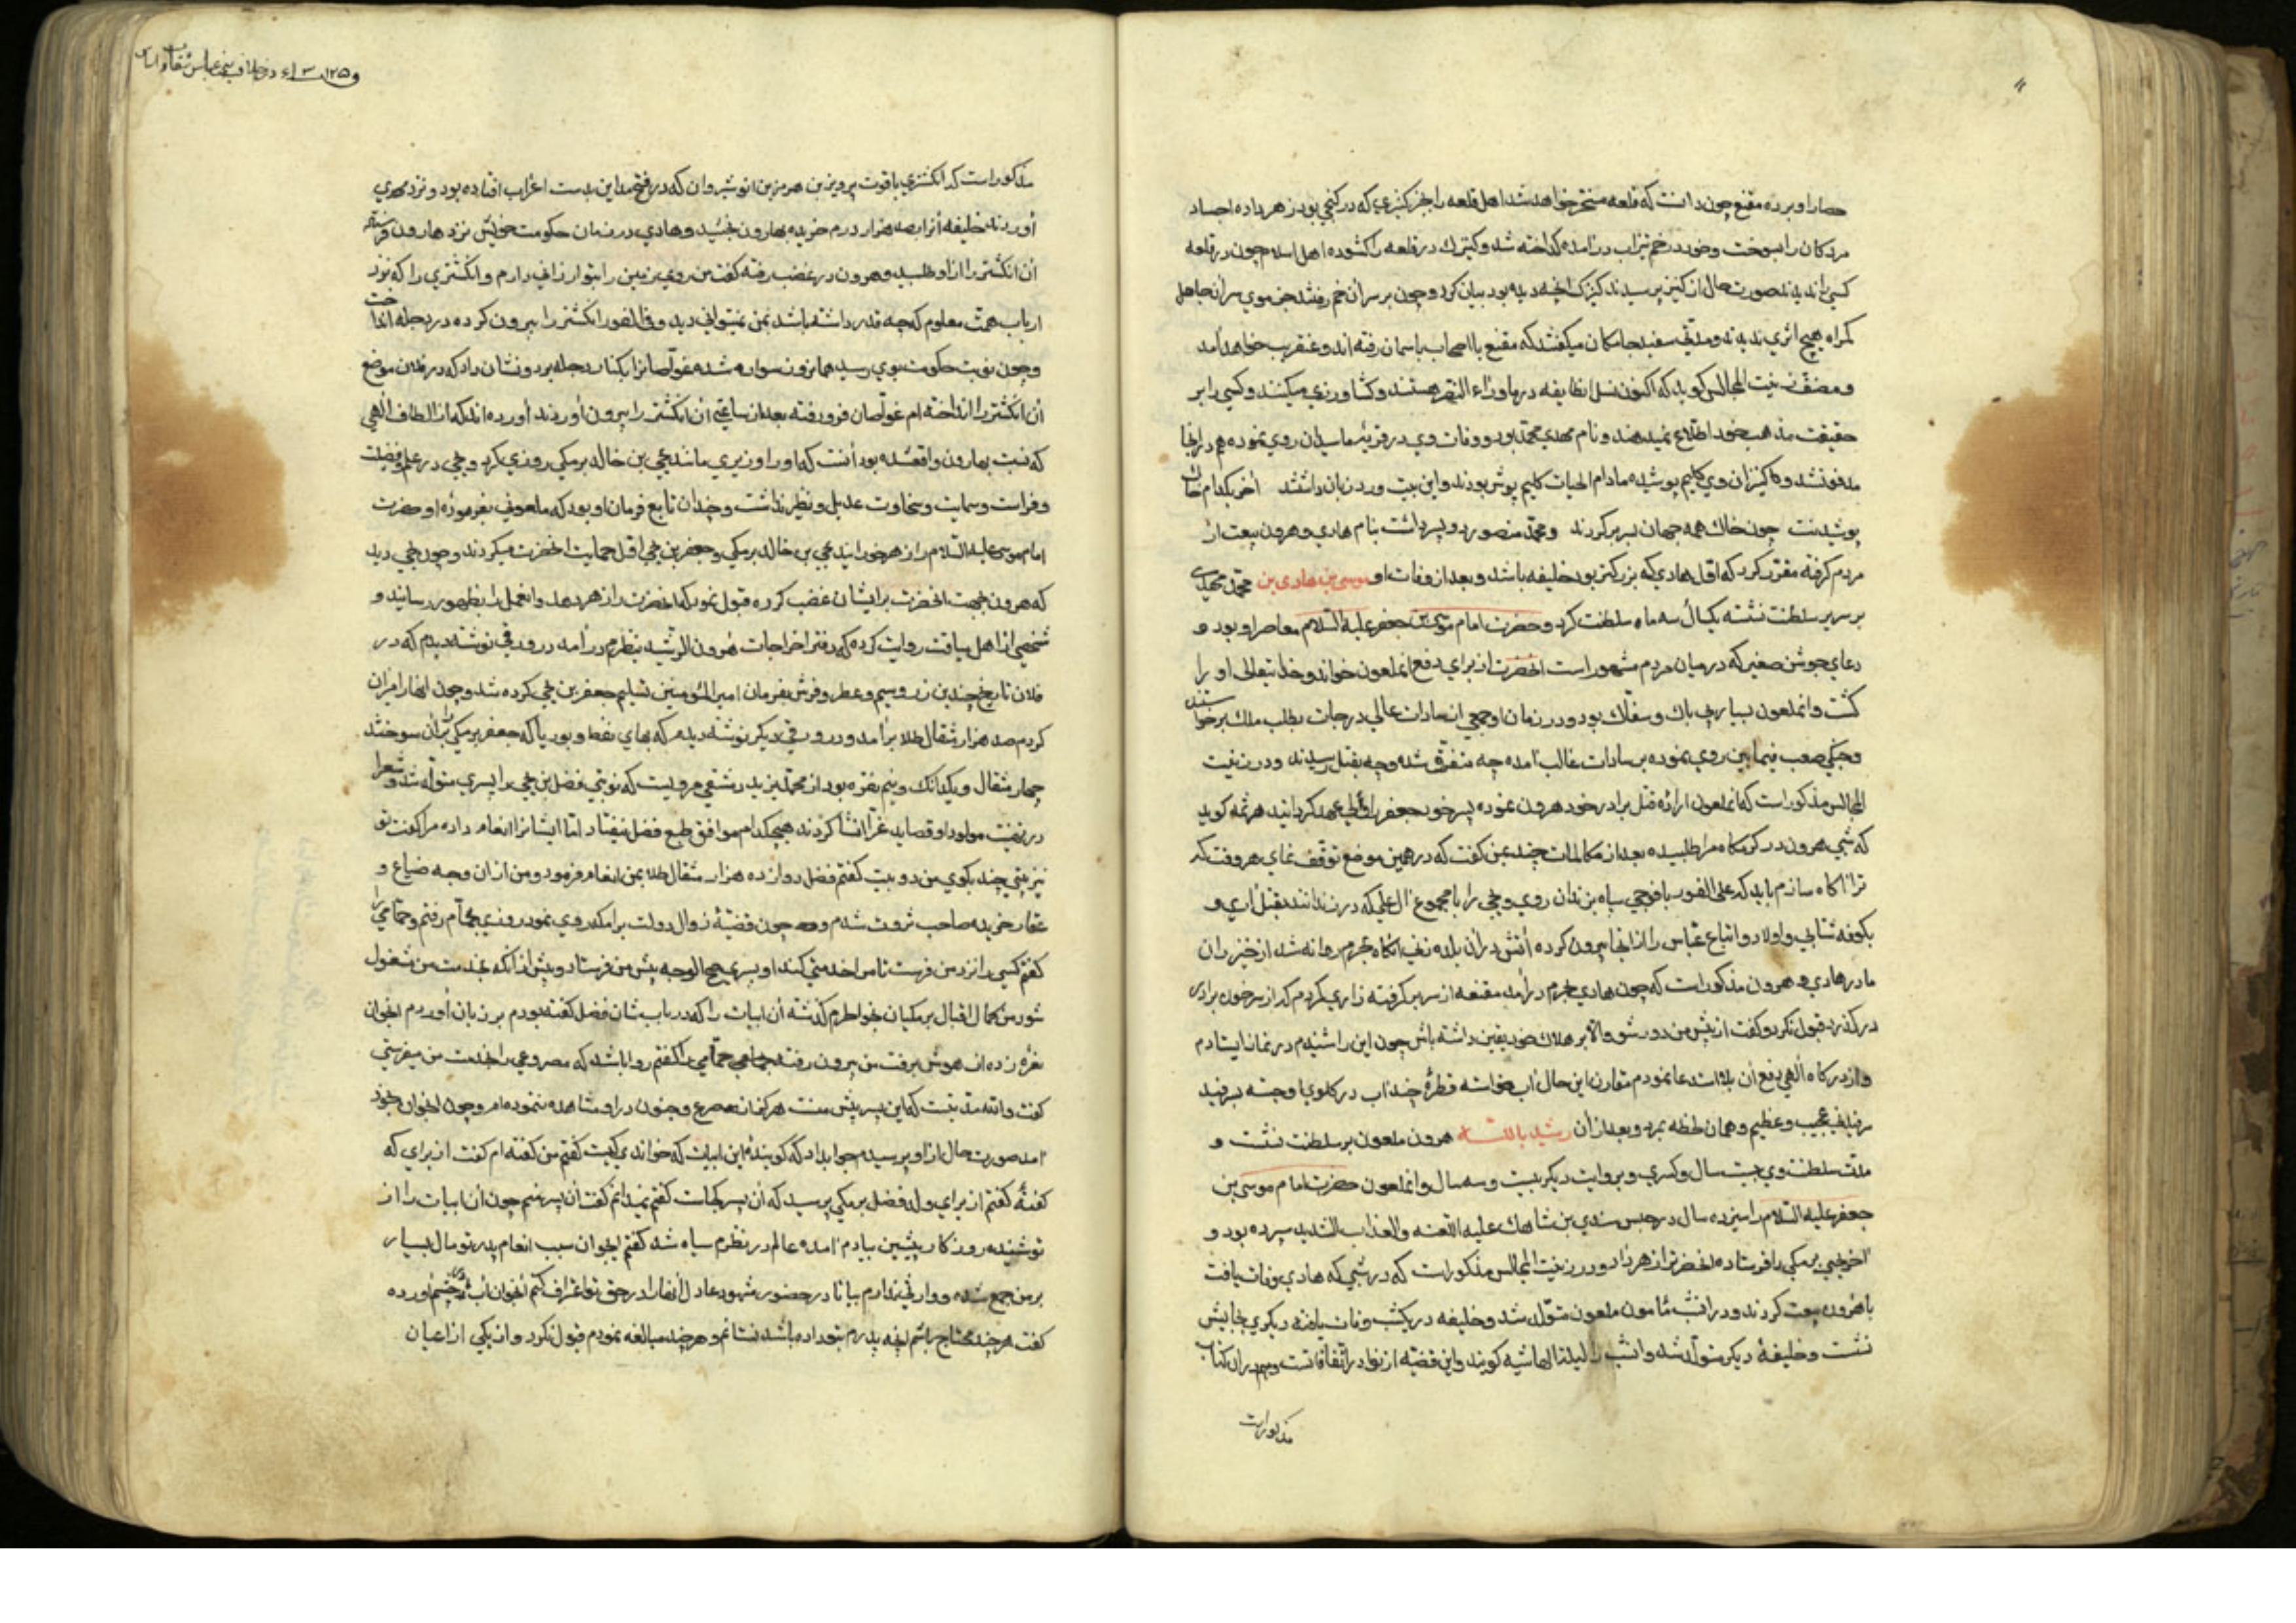 حصار او برده مقنع چون دانست که قلعه مسخر خواهد شد اهل قلعه را بجز کنیزی که در کنجی بود زهر داده اجساد
مردکان را بسوخت و خود در خم تیزاب درآمده کداخته شد و کنیزک در قلعه را کشوده اهل اسلام چون در قلعه
کسی را ندیدند صورت حال از کنیز پرسیدند کنیزک انچه دیده بود بیان کرد و چون بر سر آن خم رفتند جز موی سر آن جاهل
کمراه هیچ اثری ندیدند و مدتی سفید جامکان میکفتند که مقنع با اصحاب باسمان رفته اند و عنقریب خواهد آمد
و مصنف زینت المجالس کوید که اکنون نسل انطایفه در ماوراء النهر هستند و کشاورزی میکنند و کسی را بر
حقیقت مذهب خود اطلاع نمیدهند و نام مهدی محمد بود و وفات وی در قریه ماسبدان روی نموده هم در آنجا
مدفون شد و کنیزان وی کلیم پوشیده مادام الحیات کلیم پوش بودند و این بیت ورد زبان داشتند آخر بکدام خاک
پوشیدنت چون خاک همه جهان بسر بر کردند و محمد منصور دو پسر داشت بنام هادی و هرون بیعت از
مردم کرفته مقرر کرد که اول هادی که بزرکتر بود خلیفه باشد و بعد از وفات او موسی بن هادی بن محمد مهدی
بر سریر سلطنت نشسته یکسال سه ماه سلطنت کرد و حضرت امام موسی بن جعفر علیه السلام معاصر او بود و
دعای جوشن صغیر که در میان مردم مشهور است انحضرت از برای دفع انملعون خواند و خدایتعالی او را
کشت و انملعون بسیار بی باک و سفاک بود و در زمان او جمعی از سادات عالی درجات بطلب ملک برخواستند
و جنکی صعب فیمابین روی نموده بر سادات غالب آمده چه متفرق شده و چه بقتل رسیدند و در زینت
المجالس مذکور است که انملعون اراده قتل برادر خود هرون نموده پسر خود جعفر را ولی عهد کردانید هرثمه کوید
که شبی هرون در کرمکاه مرا طلبیده بعد از مکالمات چند بمن کفت که در همین موضع توقف نمای هر وقت که
ترا آکاه سازم باید که علی الفور با فوجی سپاه بزندان روی و یحیی را با مجموع آل علی که در زندانند بقتل آری و
بکوفه شتابی و اولاد و اتباع عباس را از انجا بیرون کرده آتش در آن بلده زنی انکاه بحرم روانه شد از خیزران
مادر هادی و هرون مذکور است که چون هادی بحرم درآمد مقنعه از سر بر کرفته زاری کردم که از سر خون برادر
در کذرد قبول نکرد و کفت از پیش من دور شو والا بر هلاک خود یقین داشته باش چون این را شنیدم در نماز ایستادم
و از درکاه الهی دفع آن بلا استدعا نمودم مقارن این حال آب خواسته قطرهٔ چند آب در کلوی او جسته بسرفید
سرفیدنی عجیب و عظیم و همان لحظه بمرد و بعد از آن رشید بالله هرون ملعون بر سلطنت نشست و
مدت سلطنت وی بیست سال و کسری و بروایت دیکر بیست و سه سال و انملعون حضرت امام موسی بن
جعفر علیه السلام را سیزده سال در حبس سندی بن شاهک علیه اللعنه و العذاب الشدید سپرده بود و
آخر یحیی برمکی را فرستاده انحضرترا زهر داد و در زینت المجالس مذکور است که در شبی که هادی وفات یافت
با هرون بیعت کردند و در انشب مامون ملعون متولد شد و خلیفه در یکشب وفات یافته دیکری بجایش
نشست و خلیفهٔ دیکر متولد شد و انشب را لیلة الهاشمیه کویند و این قضیه از نوادر اتفاقاتست و هم در ان کتاب
مذکورست
مذکور است که انکشتری یاقوت پرویز بن هرمز بن انوشیروان که در فتح مداین بدست اعراب افتاده بود و نزد مهدی
آوردند خلیفه آنرا بصد هزار درم خریده بهارون بخشید و هادی در زمان حکومت خویش نزد هارون فرستاده
آن انکشتر را از او طلبید و هرون در غضب رفته کفت من روی زمین را بتو ارزانی دارم و انکشتری را که نزد
ارباب همت معلوم که چه قدر داشته باشد بمن نمیتوانی دید و فی الفور انکشتر را بیرون کرده در دجله انداخت
و چون نوبت حکومت بوی رسید همانروز سواره شده غواصانرا بکنار دجله برد و نشان داد که در فلان موضع
آن انکشتر را انداخته ام غواصان فرو رفته بعد از ساعتی آن انکشتر را بیرون آوردند آورده اند که از الطاف الهی
که نسبت بهارون واقع شده بود آنست که او را وزیری مانند یحیی بن خالد برمکی روزی کرد و یحیی در علم و فضیلت
و فراست و سماحت و سخاوت عدیل و نظیر نداشت و چندان تابع فرمان او بود که ملعونی بفرموده او حضرت
امام موسی علیه السلام را زهر خورانید یحیی بن خالد برمکی و جعفر بن یحیی اول حمایت انحضرت میکردند و چون یحیی دید
که هرون بجهت انحضرت بر ایشان غضب کرده قبول نمود که انحضرت را زهر دهد و انعمل را بظهور رسانید و
شخصی از اهل سیاقت روایت کرده که دفتر اخراجات هرون الرشید بنظرم درآمد در ورقی نوشته دیدم که در
فلان تاریخ چندین زر و سیم و عطر و فرش بفرمان امیر المؤمنین تسلیم جعفر بن یحیی کرده شد و چون انها را میزان
کردم صد هزار مثقال طلا برآمد و در ورقی دیکر نوشته دیدم که بهای نفط و بوریا که جعفر برمکی را بر آن سوختند
چهار مثقال و یکدانک و نیم نقره بود از محمد بن یزید دمشقی مرویست که نوبتی فضل بن یحیی را پسری متولد شد و شعرا
در تهنیت مولود او قصاید غرا انشا کردند هیچکدام موافق طبع فضل نیفتاد اما ایشانرا انعام داده مرا کفت تو
نیز بیتی چند بکوی من دو بیت کفتم فضل دوازده هزار مثقال طلا بمن انعام فرمود و من از ان وجه ضیاع و
عقار خریده صاحب ثروت شدم و چون قضیهٔ زوال دولت برامکه روی نمود روزی بحمام رفتم و حمامی را
کفتم کسی را نزد من فرست تا مرا خدمتی کند او پسری صبیح الوجه پیش من فرستاد و پیش از آنکه بخدمت من مشغول
شود من کمال اقبال برمکیان بخواطرم کذشته آن ابیات را که در باب شان فضل کفته بودم بر زبان آوردم انجوان
نعره زده از هوش برفت من بیرون رفته حمامی را کفتم روا باشد که مصروعی را بخدمت من میفرستی
کفت والله مدتیست که این پسر پیش منست هرکز از صرع و جنون در او مشاهده ننموده ام و چون انجوان بخود
آمد صورت حال از او پرسیدم جواب داد که کویندهٔ این ابیات که خواندی کیست کفتم من کفته ام کفت از برای که
کفتهٔ کفتم از برای ولد فضل برمکی پرسید که آن پسر کجاست کفتم نمیدانم کفت آن پسر منم چون آن ابیات را از
تو شنیدم روزکار پیشین بیادم آمده عالم در نظرم سیاه شد کفتم ایجوان سبب انعام پدر تو مال بسیار
بر من جمع شده و وارثی ندارم بیا تا در حضور شهود عادل انها را در حق تو اعتراف کنم انجوان آب در چشم آورده
کفت هر چند محتاج باشم انچه پدرم بتو داده باشد نستانم و هر چند مبالغه نمودم قبول نکرد و از یکی از اعیان